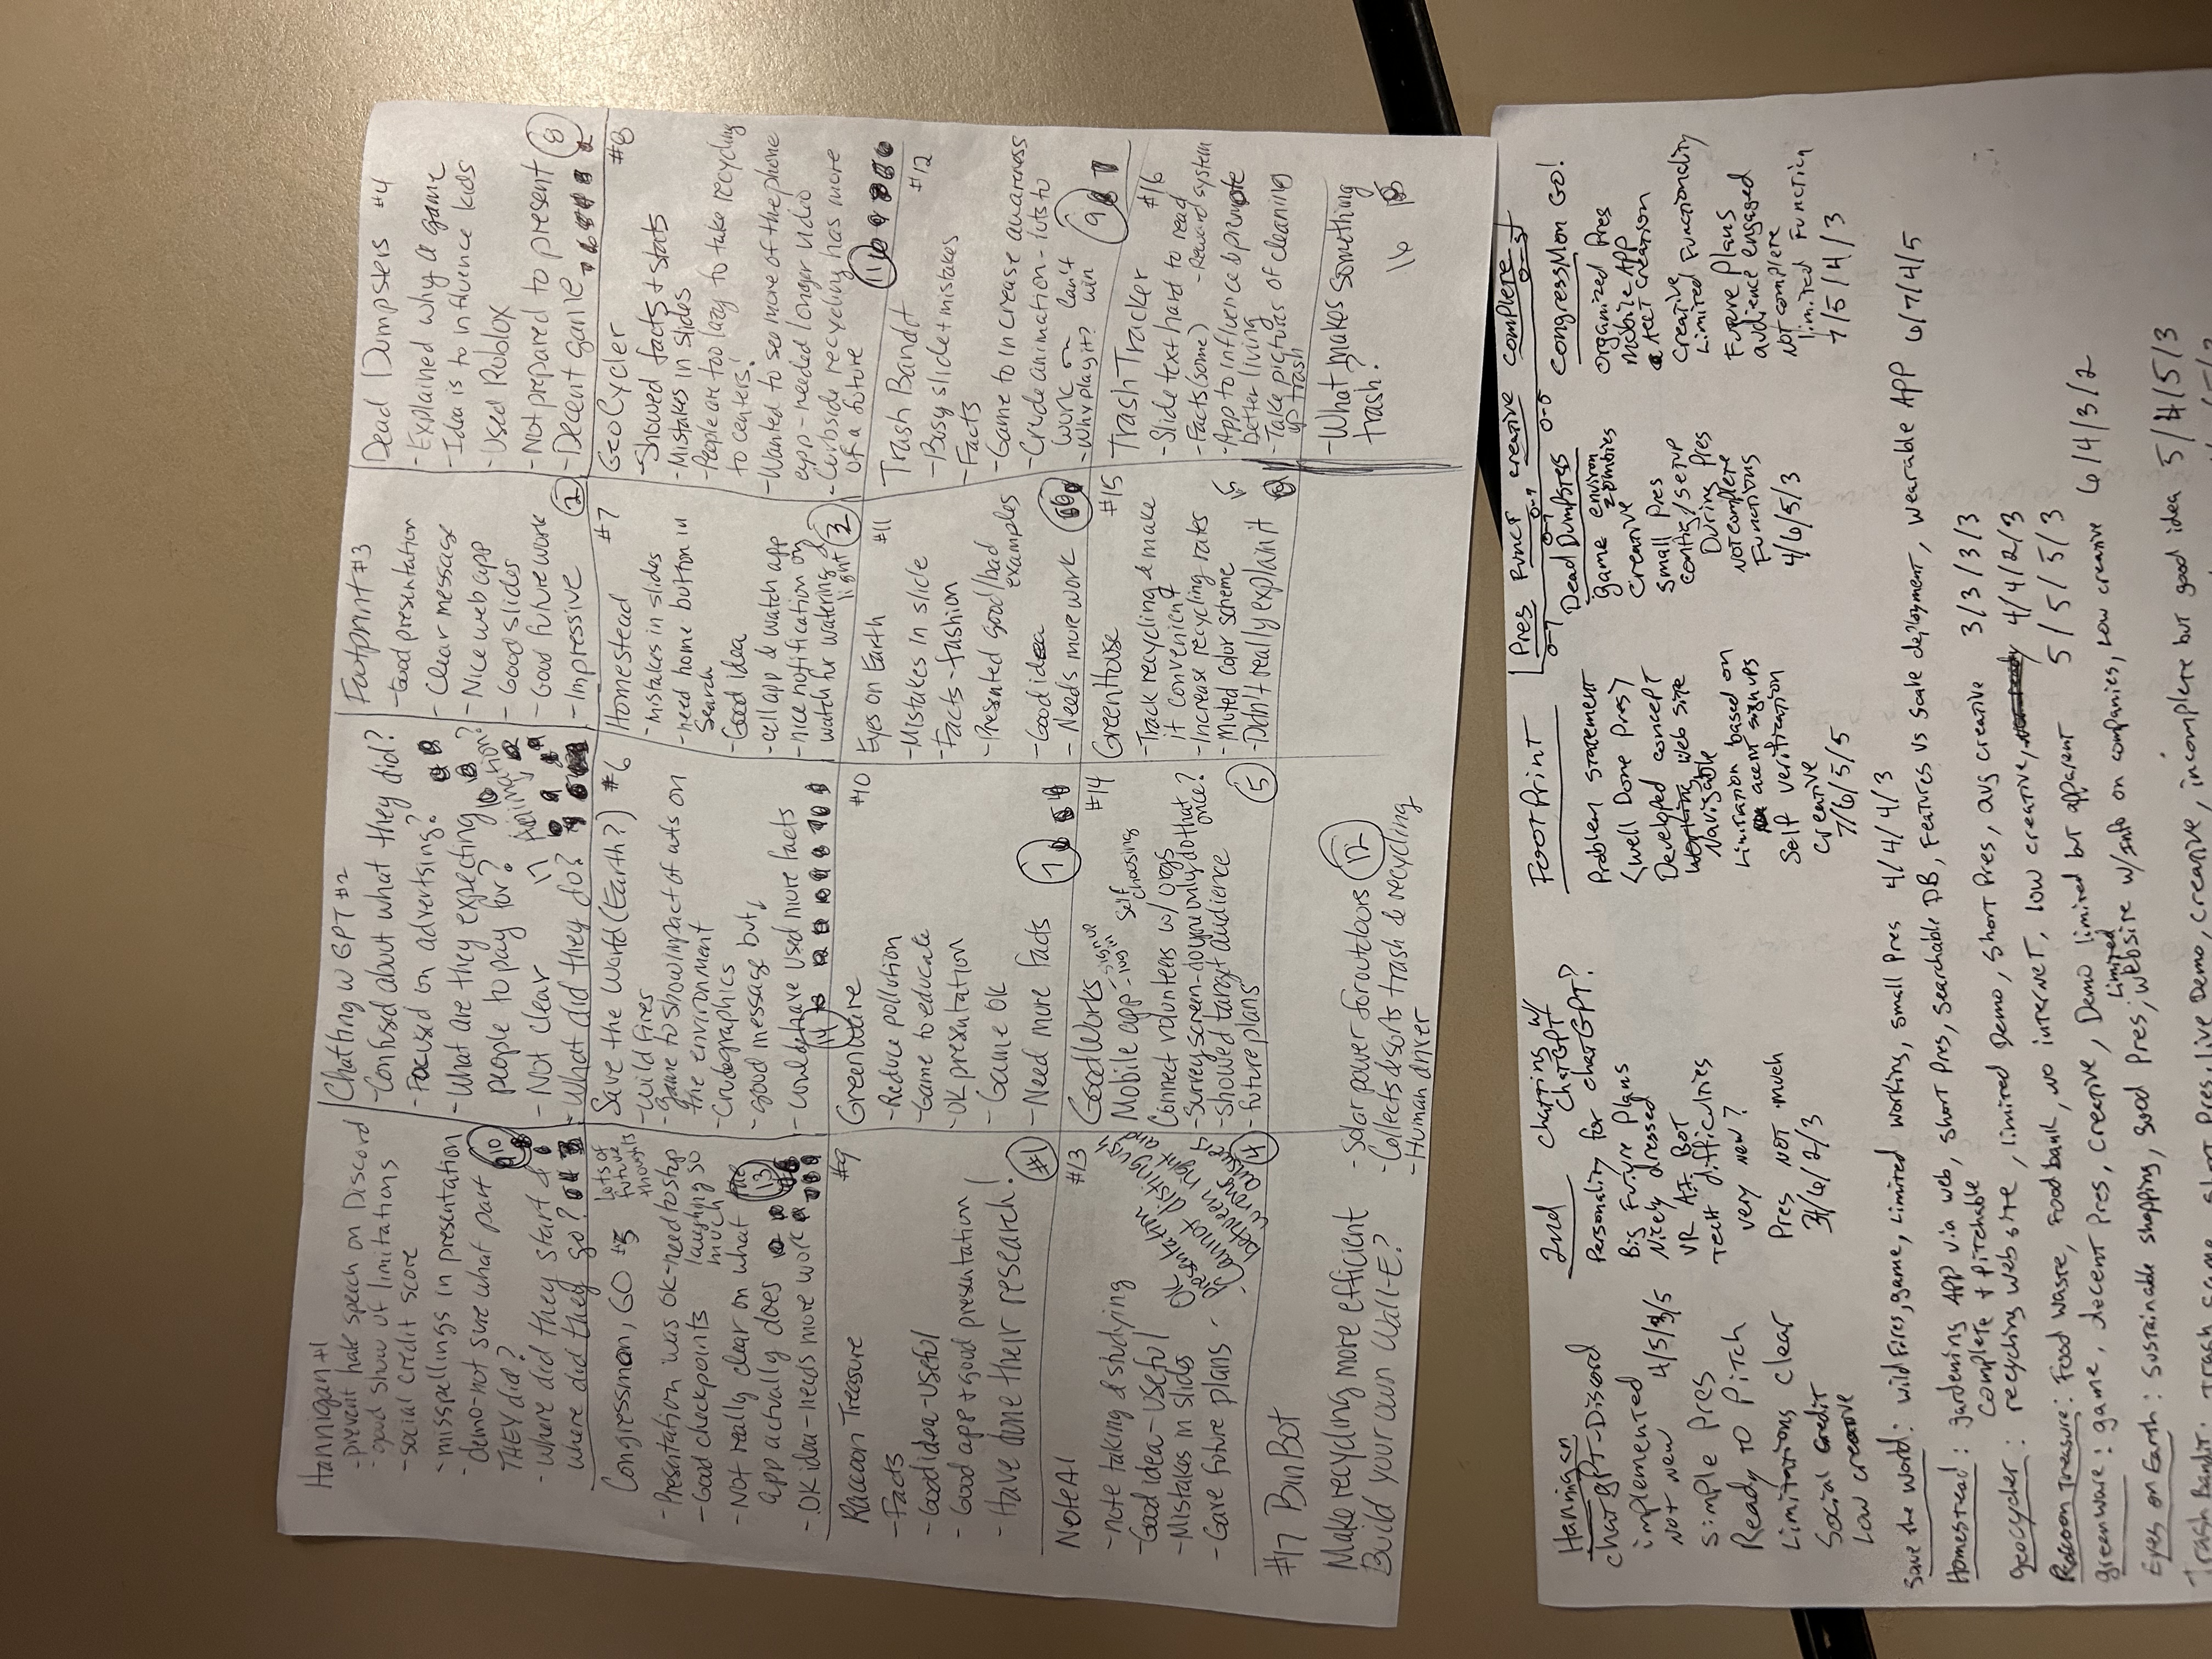 Hannigan #1
- prevent hate speech on Discord
- good show of limitations
- social credit score
- misspellings in presentation
- demo - not sure what part
THEY did?
- where did they start &
where did they go?
10
Chatting w GPT #2
- Confused about what they did?
- Focused on advertsing?
- What are they expecting
people to pay for?
- Not clear
- What did they do?
17 Animation?
Footprint #3
- Good presentation
- Clear message
- Nice web app
- Good slides
- Good future work
- Impressive
2
Dead Dumpsters #4
- Explained why a game
- Idea is to influence kids
- Used Roblox
- Not prepared to present
- Decent game
8
Congressmon, GO #5
Lots of
future
thoughts
- Presentation was OK - need to stop
laughing so
much
- Good checkpoints
- Not really clear on what the
app actually does
- OK idea - needs more work
13
Save the World (Earth?) #6
- Wild Fires
- game to show impact of acts on
the environment
- Crude graphics
- good message but
- could have used more facts
14
Homestead #7
- Mistakes in slides
- need home button in
Search
- Good idea
- cell app & watch app
- nice notification on
watch for watering &
light
3
GeoCycler #8
- Showed facts + stats
- Mistakes in slides
- People are too lazy to take recycling
to centers!
- Wanted to see more of the phone
app - needed longer video
- Curbside recycling has more
of a future
11
Raccoon Treasure #9
- Facts
- Good idea - useful
- Good app + good presentation
- Have done their research!
#1
GreenWare #10
- Reduce pollution
- Game to educate
- OK presentation
- Game OK
- Need more facts
7
Eyes on Earth #11
- Mistakes in slide
- Facts - fashion
- Presented good/bad
examples
- Good idea
- Needs more work
Trash Bandit #12
- Busy slide + mistakes
- Facts
- Game to increase awareness
- Crude animation - lots to
work on
- Why play it? can't
win
9
NoteAI #13
- note taking & studying
- Good idea - useful
- Mistakes in slides
- Gave future plans
- OK
presentation
- Cannot distinguish
between right and
wrong
answers
4
GoodWorks #14
Mobile app - sign up
- log in
Self
choosing
Connect volunteers w/ orgs
- Survey screen - do you only do that
once?
- showed target audience
- future plans
5
GreenHouse #15
- Track recycling & make
it convenient
- Increase recycling rates
- Muted color scheme
- Didn't really explain it
15
Trash Tracker #16
- Slide text hard to read
- Facts (some) - Reward system
- App to influence & promote
better living
- Take pictures of cleaning
up trash
- What makes something
trash?
16
#17 BinBot
Make recycling more efficient
Build your own Wall-E?
- Solar power for outdoors 12
- Collects & sorts trash & recycling
- Human driver
Pres Funct creative complete
0-7 0-7 0-5 0-5
Hannigan
ChatgPT-Discord
implemented
Not New 4/5/3/5
Simple Pres
Ready to Pitch
Limitations clear
Social Credit
Low creative
2nd Chatting w/
ChatGPT
Personality for chatGPT?
Big Future Plans
Nicely dressed
VR A.I. BoT
Tech difficulties
very new?
Pres NOT much
3/6/2/3
FootPrint
Problem Statement
(well Done Pres)
Developed concept
Working Web site
Navigable
Limitation based on
accnt signups
Self verification
creative
7/6/5/5
Dead Dumpsters
game environ
zombies
Creative
Small Pres
Config/Setup
During Pres
Not complete
Functions
4/6/5/3
CongressMon GO!
organized Pres
Mobile APP
Acct creation
Creative
Limited Functionality
Future Plans
audience engaged
Not complete
limited Function
7/5/4/3
Save the World: wild Fires, game, Limited working, small Pres 4/4/4/3
Homestead: gardening APP via web, short Pres, Searchable DB, Features vs Scale deployment, wearable APP 6/7/4/5
Complete + Pitchable
geocycler: recycling web site, limited Demo, Short Pres, avg creative 3/3/3/3
Raccoon Treasure: Food Waste, Food bank, no internet, low creative, 4/4/2/3
greenware: game, decent Pres, creative, Demo limited but apparent 5/5/5/3
Eyes on Earth: Sustainable shopping, good Pres, Limited website w/Info on companies, Low creative 6/4/3/2
Trash Bandit: Trash game, short Pres, live Demo, creative, incomplete but good idea 5/4/5/3